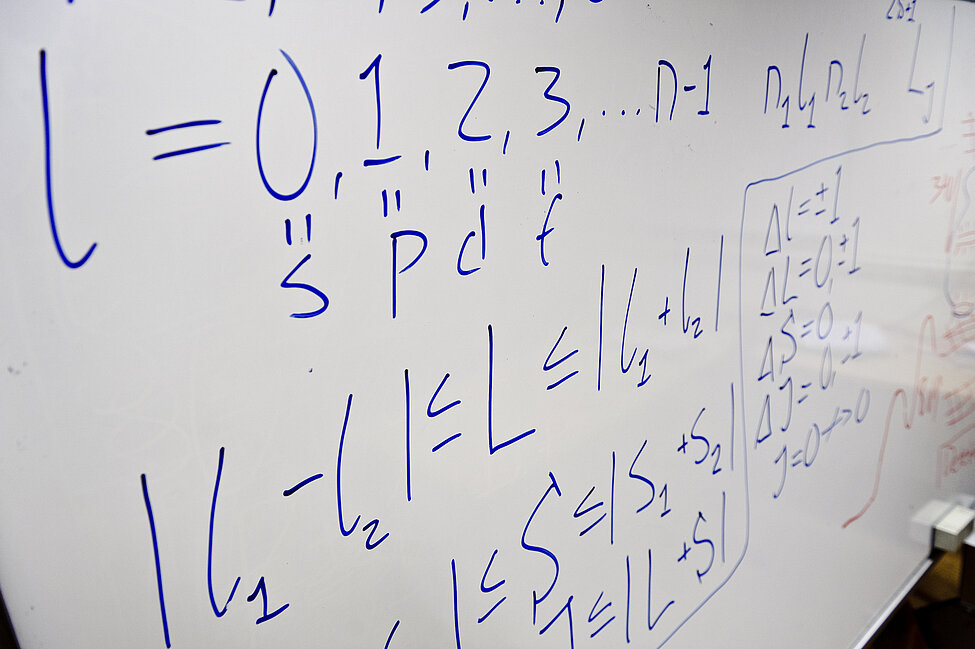 l = 0, 1, 2, 3, ... n-1 n₁l₁n₂l₂ ²ˢ⁺¹L_J
" " " "
s p d f
|l₁ - l₂| ≤ L ≤ |l₁ + l₂|
≤ S ≤ |S₁ + S₂|
J ≤ |L + S|
Δl = ±1
ΔL = 0, ±1
ΔS = 0
ΔJ = 0, ±1
J = 0 ↛ 0